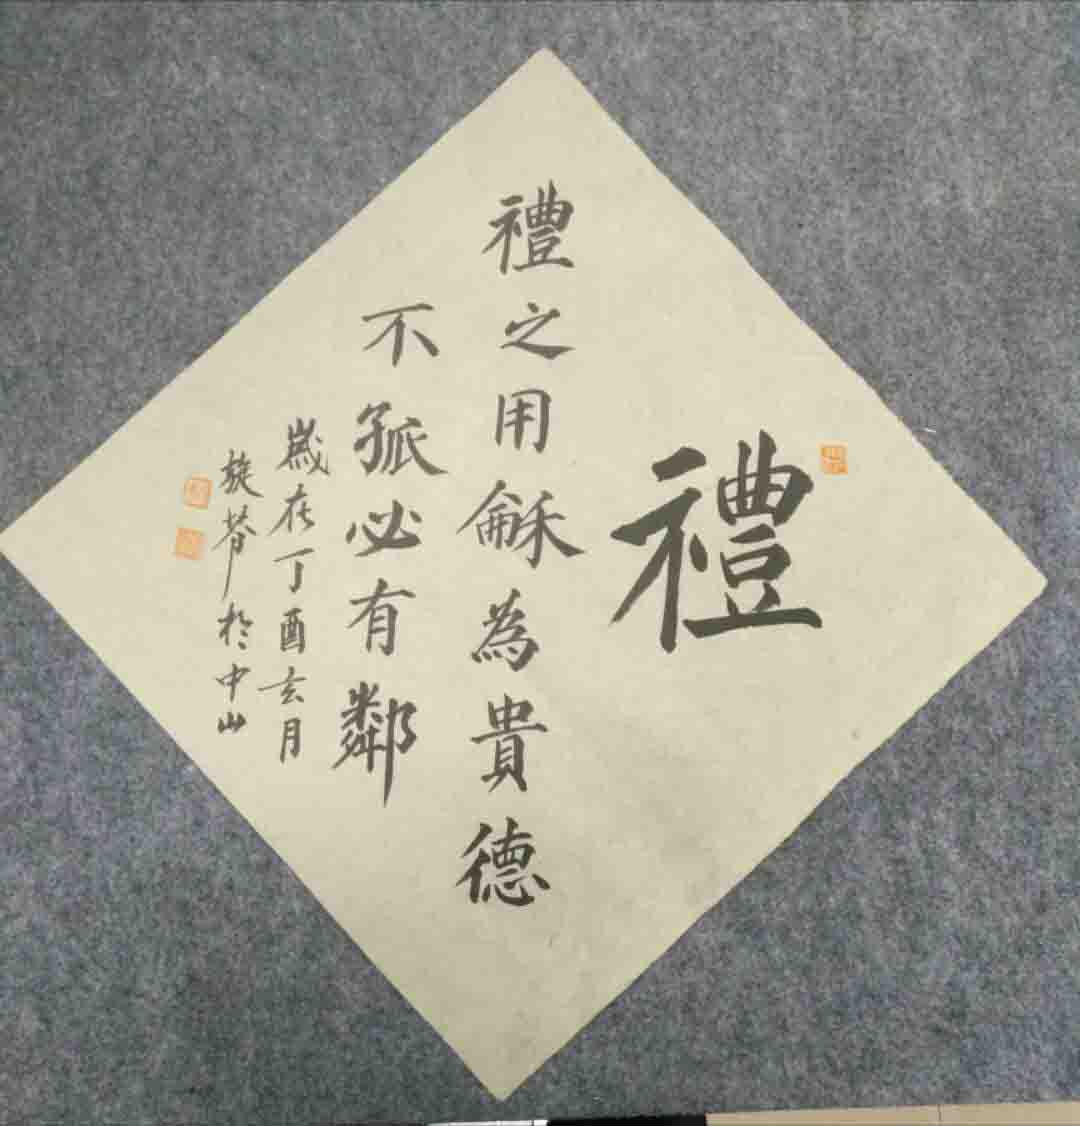 禮
禮之用龢為貴德
不孤必有鄰
歲在丁酉玄月
旋於中山